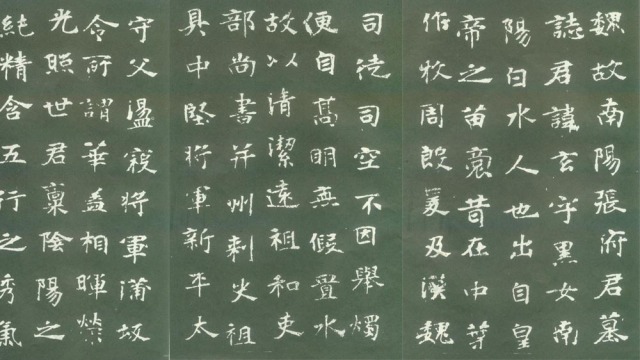 魏故南陽張府君墓
誌君諱玄字黑女南
陽白水人也出自皇
帝之苗裔昔在中葉
作牧周殷爰及漢魏
司徒司空不因舉燭
便自高明無假置水
故以清潔遠祖和吏
部尚書并州刺史祖
具中堅將軍新平太
守父盪寇將軍蒲坂
令所謂華蓋相暉榮
光照世君稟陰陽之
純精含五行之秀氣